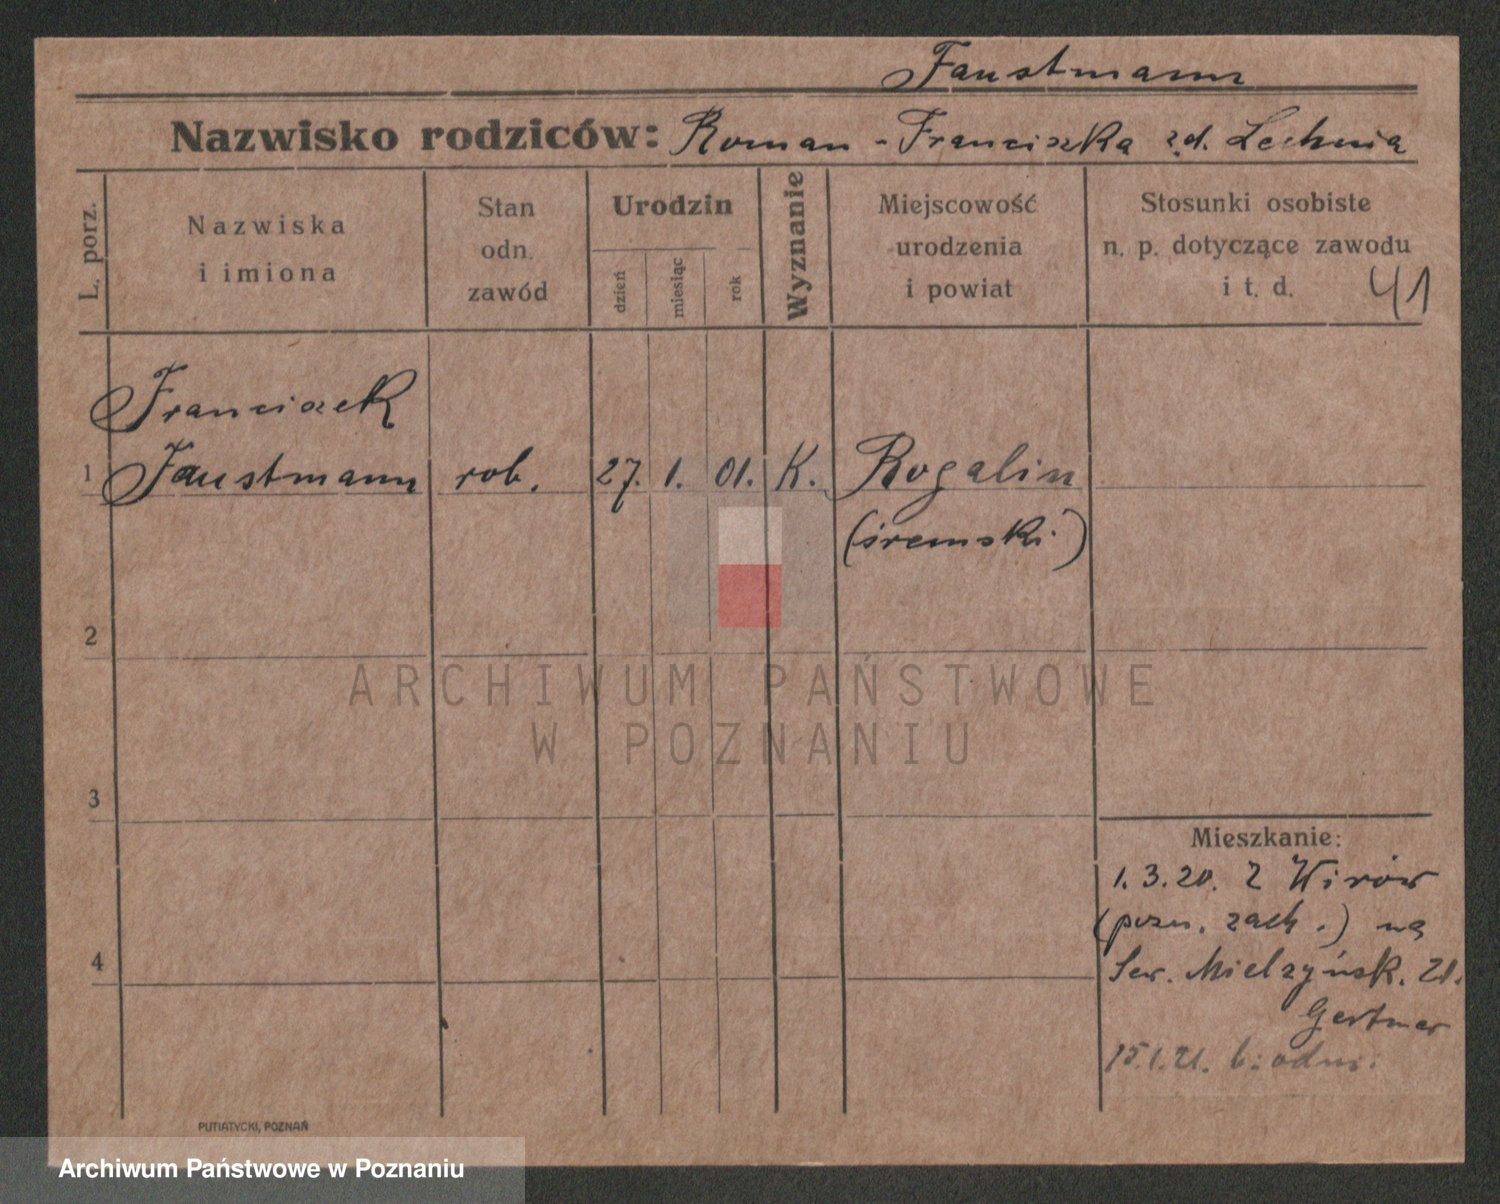 Faustmann
Nazwisko rodziców: Roman - Franciszka z d. Lechnia
L. porz.
Nazwiska
i imiona
Stan
odn.
zawód
Urodzin
dzień
miesiąc
rok
Wyznanie
Miejscowość
urodzenia
i powiat
Stosunki osobiste
n. p. dotyczące zawodu
i t. d.
41
Franciszek
1 Faustmann rob. 27. 1. 01. K. Rogalin
(śremski)
2
3
4
Mieszkanie:
1.3.20. Z Wirów
(pozn. zach.) na
Sew. Mielżyńsk. 21.
Gertner
15.1.21. b. odm.
ARCHIWUM PAŃSTWOWE
W POZNANIU
PUTIATYCKI, POZNAŃ
Archiwum Państwowe w Poznaniu